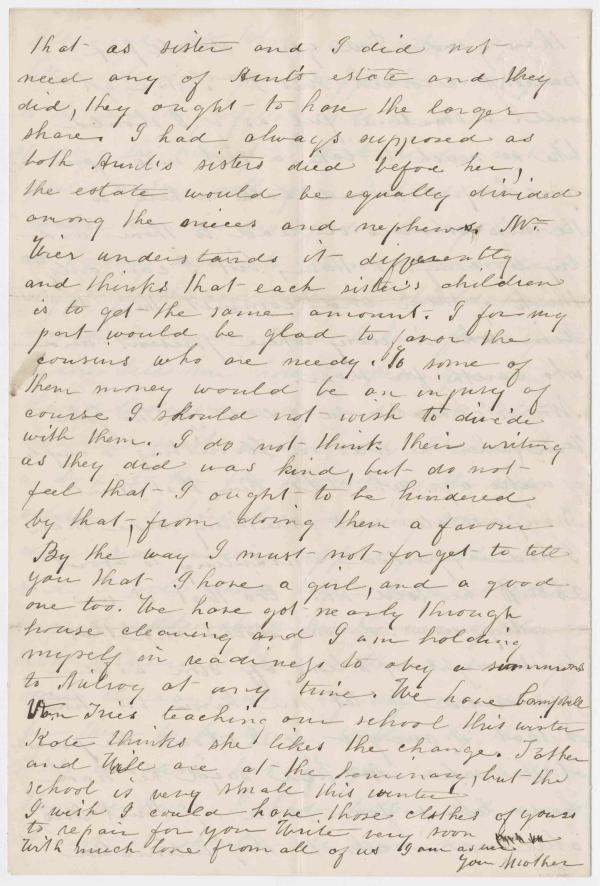 that as sister and I did not
need any of Aunt's estate and they
did, they ought to have the larger
share. I had always supposed as
both Aunt's sisters died before her,
the estate would be equally divided
among the nieces and nephews. Mr.
understands it differently
and thinks that each sister's children
is to get the same amount. I for my
part would be glad to favor the
cousins who are needy. To some of
them money would be an injury of
course I should not wish to divide
with them. I do not think their writing
as they did was kind, but do not
feel that I ought to be hindered
by that, from doing them a favour
By the way I must not forget to tell
you that I have a girl, and a good
one too. We have got nearly through
house cleaning and I am holding
myself in readiness to obey a summons
to Milroy at any time. We have Campbell
Van teaching our school this winter
Kate thinks she likes the change.
and are at the Seminary, but the
school is very small this winter
I wish I could have those clothes of yours
to repair for you Write very soon
with much love from all of us I am as ever
Your Mother